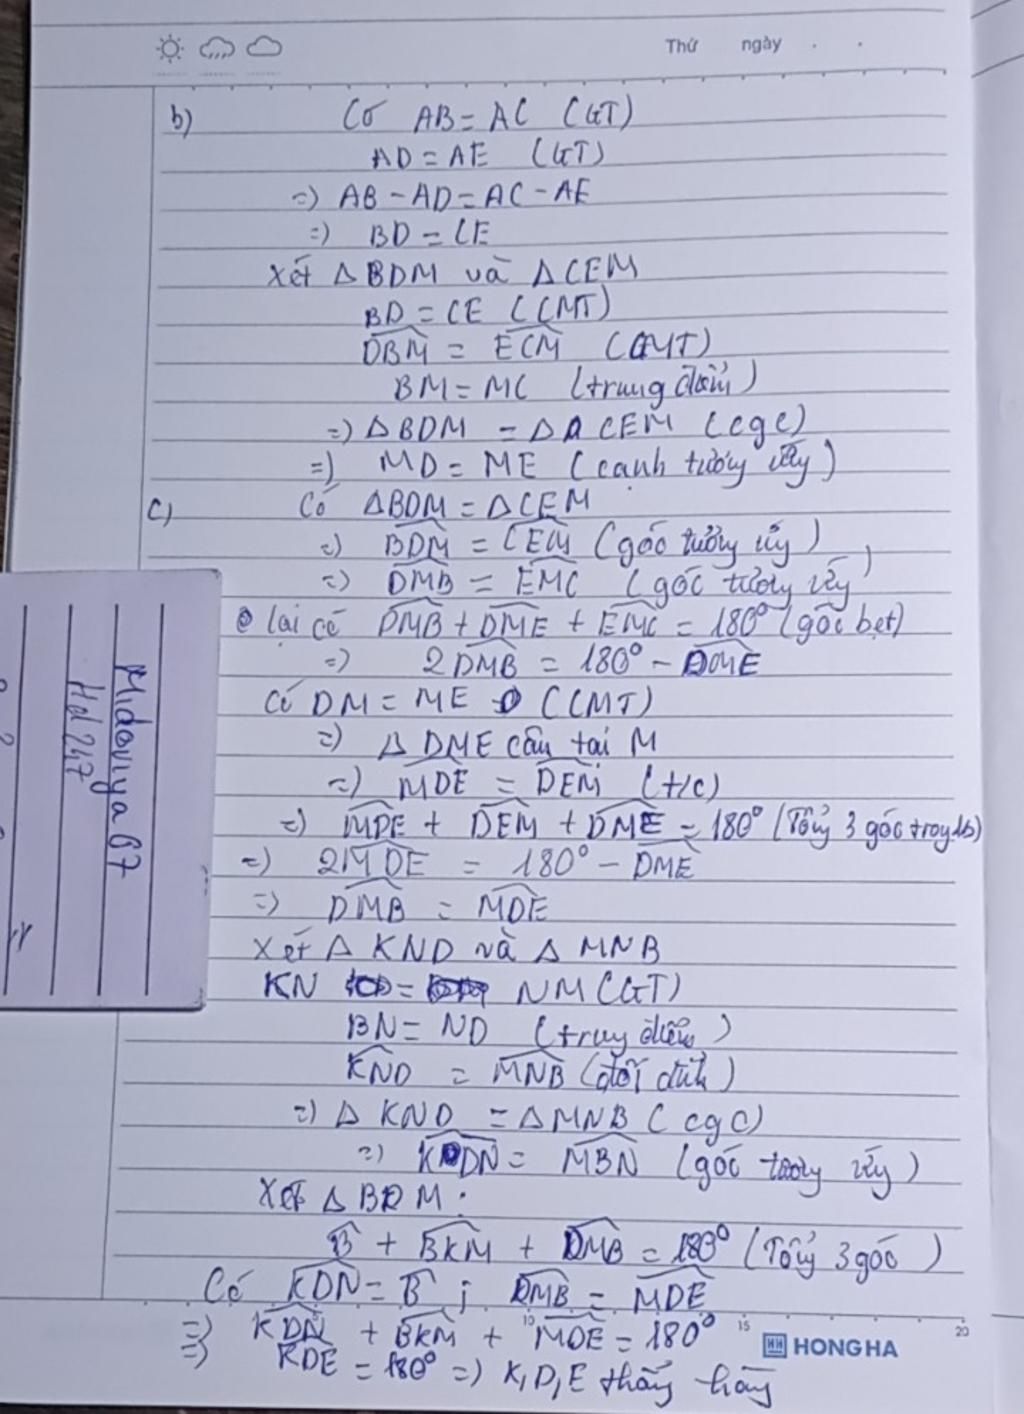 Thứ ngày . .
b) Có AB = AC (GT)
AD = AE (GT)
=) AB - AD = AC - AE
=) BD = CE
Xét Δ BDM và Δ CEM
BD = CE (CMT)
DBM = ECM (CMT)
BM = MC (trung điểm)
=) Δ BDM = Δ CEM (cgc)
=) MD = ME (cạnh tương ứng)
c) Có ΔBDM = ΔCEM
=) BDM = CEM (góc tương ứng)
=) DMB = EMC (góc tương ứng)
lại có DMB + DME + EMC = 180° (góc bẹt)
=) 2DMB = 180° - DME
Có DM = ME (CMT)
=) Δ DME cân tại M
=) MDE = DEM (t/c)
=) MDE + DEM + DME = 180° (Tổng 3 góc trong Δ)
=) 2MDE = 180° - DME
=) DMB = MDE
Xét Δ KND và Δ MNB
KN = NM (GT)
BN = ND (trung điểm)
KND = MNB (đối đỉnh)
=) Δ KND = Δ MNB (cgc)
=) KDN = MBN (góc tương ứng)
Xét Δ BDM :
B + BKM + DMB = 180° (Tổng 3 góc)
Có KDN = B ; DMB = MDE
=) KDN + BKM + MDE = 180°
=) KDE = 180° =) K, D, E thẳng hàng
10 15 20
HONG HA
Midoriya 67
Hd 247